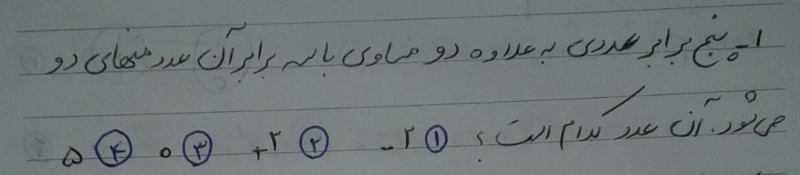 ۱- پنج برابر عددی به علاوه دو مساوی با سه برابر آن عدد منهای دو
می‌شود. آن عدد کدام است؟ ① ۲- ② ۲+ ③ ۰ ④ ۵